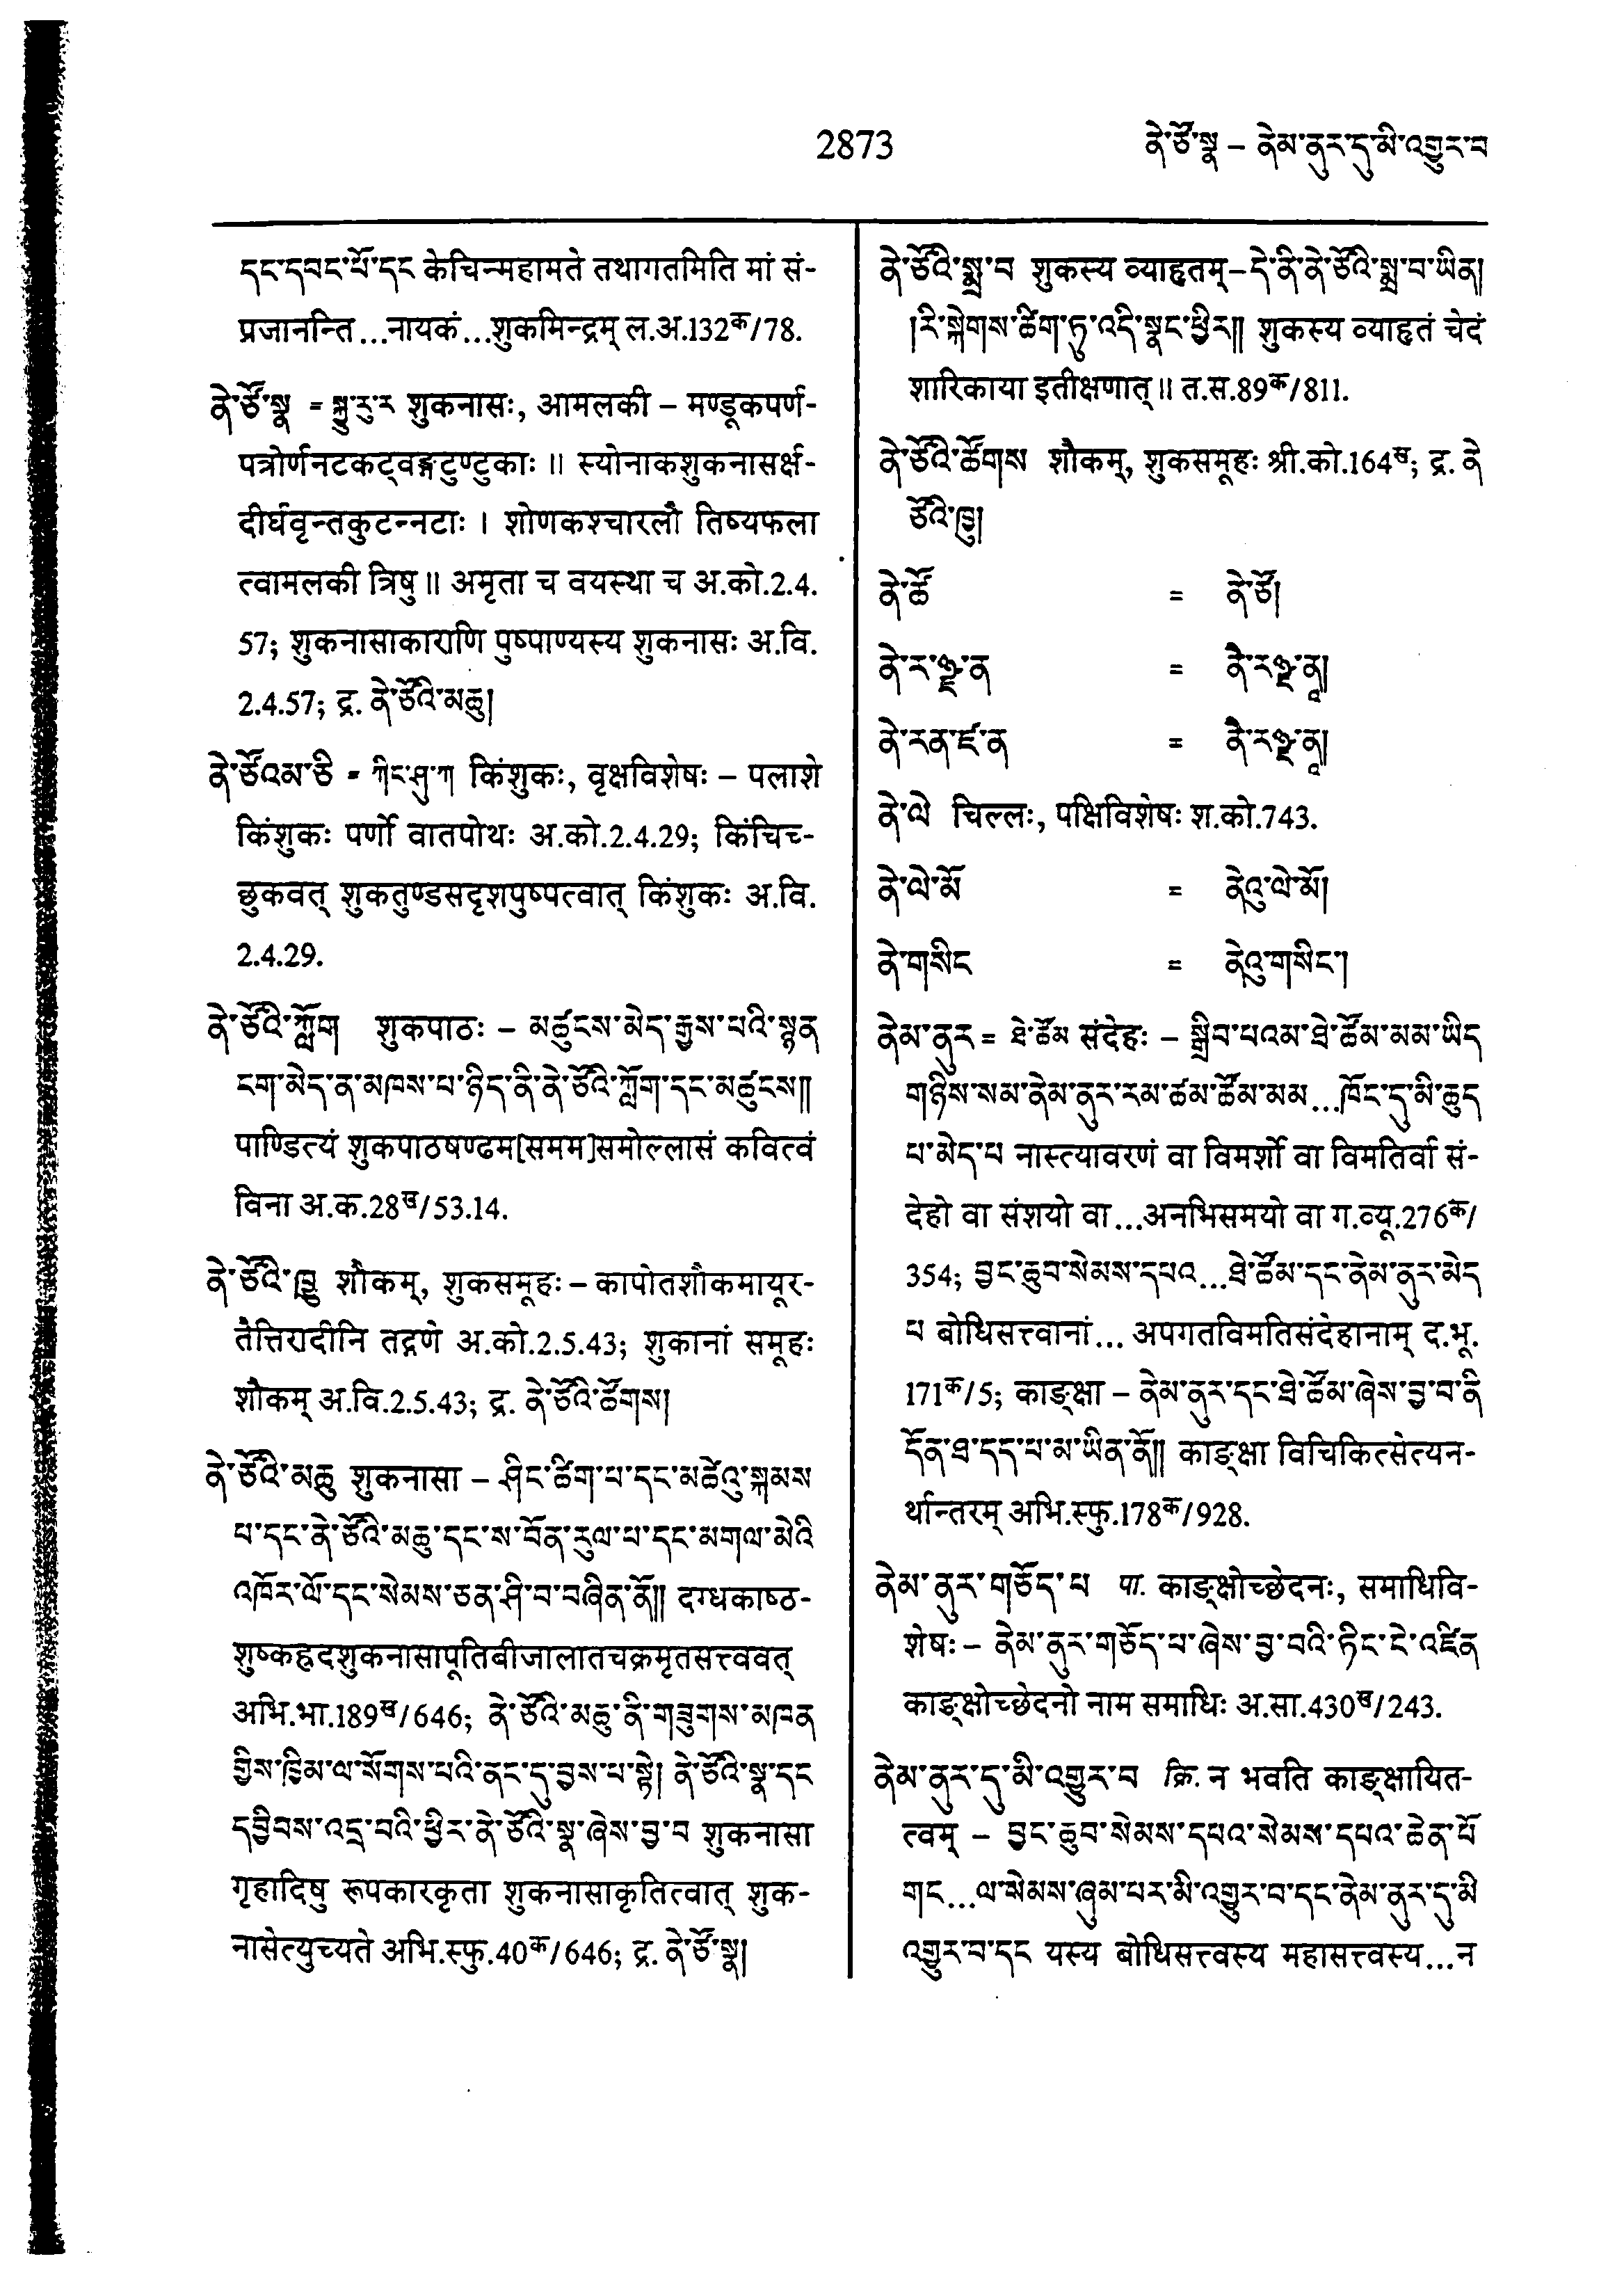 2873
ནེ་ཙོ་སྣ – ནེམ་ནུར་དུ་མི་འགྱུར་བ
དང་དབང་པོ་དང केचिन्महामते तथागतमिति मां सं-
प्रजानन्ति...नायकं...शुकमिन्द्रम् ल.अ.132क/78.
ནེ་ཙོ་སྣ = སྐྱུ་རུ་ར शुकनासः, आमलकी – मण्डूकपर्ण-
पत्रोर्णनटकट्वङ्गटुण्टुकाः ॥ स्योनाकशुकनासर्क्ष-
दीर्घवृन्तकुटन्नटाः । शोणकश्चारलौ तिष्यफला
त्वामलकी त्रिषु ॥ अमृता च वयस्था च अ.को.2.4.
57; शुकनासाकाराणि पुष्पाण्यस्य शुकनासः अ.वि.
2.4.57; द्र. ནེ་ཙོའི་མཆུ།
ནེ་ཙོའམ་ཅི = ཀིང་ཤུ་ཀ किंशुकः, वृक्षविशेषः – पलाशे
किंशुकः पर्णो वातपोथः अ.को.2.4.29; किंचिच्-
छुकवत् शुकतुण्डसदृशपुष्पत्वात् किंशुकः अ.वि.
2.4.29.
ནེ་ཙོའི་ཀློག शुकपाठः – མཚུངས་མེད་རྒྱས་པའི་སྙན
ངག་མེད་ན་མཁས་པ་ཉིད་ནི་ནེ་ཙོའི་ཀློག་དང་མཚུངས།།
पाण्डित्यं शुकपाठषण्ढम[समम]समोल्लासं कवित्वं
विना अ.क.28ख/53.14.
ནེ་ཙོའི་ཁྱུ शौकम्, शुकसमूहः – कापोतशौकमायूर-
तैत्तिरादीनि तद्गणे अ.को.2.5.43; शुकानां समूहः
शौकम् अ.वि.2.5.43; द्र. ནེ་ཙོའི་ཚོགས།
ནེ་ཙོའི་མཆུ शुकनासा – ཤིང་ཚིག་པ་དང་མཚེའུ་སྐམས
པ་དང་ནེ་ཙོའི་མཆུ་དང་ས་བོན་རུལ་པ་དང་མགལ་མེའི
འཁོར་ལོ་དང་སེམས་ཅན་ཤི་བ་བཞིན་ནོ།། दग्धकाष्ठ-
शुष्कह्रदशुकनासापूतिबीजालातचक्रमृतसत्त्ववत्
अभि.भा.189ख/646; ནེ་ཙོའི་མཆུ་ནི་གཟུགས་མཁན
གྱིས་ཁྱིམ་ལ་སོགས་པའི་ནང་དུ་བྱས་པ་སྟེ། ནེ་ཙོའི་སྣ་དང
དབྱིབས་འདྲ་བའི་ཕྱིར་ནེ་ཙོའི་སྣ་ཞེས་བྱ་བ शुकनासा
गृहादिषु रूपकारकृता शुकनासाकृतित्वात् शुक-
नासेत्युच्यते अभि.स्फु.40क/646; द्र. ནེ་ཙོ་སྣ།
ནེ་ཙོའི་སྨྲ་བ शुकस्य व्याहृतम्–དེ་ནི་ནེ་ཙོའི་སྨྲ་བ་ཡིན།
།རི་སྐེགས་ཚིག་ཏུ་འདི་སྣང་ཕྱིར།། शुकस्य व्याहृतं चेदं
शारिकाया इतीक्षणात् ॥ त.स.89क/811.
ནེ་ཙོའི་ཚོགས शौकम्, शुकसमूहः श्री.को.164ख; द्र. ནེ
ཙོའི་ཁྱུ།
ནེ་ཚོ = ནེ་ཙོ།
ནེ་ར་ཉྫ་ན = ནཻ་རཉྫ་ནཱ།
ནེ་རན་ཛ་ན = ནཻ་རཉྫ་ནཱ།
ནེ་ལེ चिल्लः, पक्षिविशेषः श.को.743.
ནེ་ལེ་མོ = ནེའུ་ལེ་མོ།
ནེ་གསིང = ནེའུ་གསིང་།
ནེམ་ནུར = ཐེ་ཚོམ संदेहः – སྒྲིབ་པའམ་ཐེ་ཚོམ་མམ་ཡིད
གཉིས་སམ་ནེམ་ནུར་རམ་ཚམ་ཚོམ་མམ...ཁོང་དུ་མི་ཆུད
པ་མེད་པ नास्त्यावरणं वा विमर्शो वा विमतिर्वा सं-
देहो वा संशयो वा...अनभिसमयो वा ग.व्यू.276क/
354; བྱང་ཆུབ་སེམས་དཔའ...ཐེ་ཚོམ་དང་ནེམ་ནུར་མེད
པ बोधिसत्त्वानां... अपगतविमतिसंदेहानाम् द.भू.
171क/5; काङ्क्षा – ནེམ་ནུར་དང་ཐེ་ཚོམ་ཞེས་བྱ་བ་ནི
དོན་ཐ་དད་པ་མ་ཡིན་ནོ།། काङ्क्षा विचिकित्सेत्यन-
र्थान्तरम् अभि.स्फु.178क/928.
ནེམ་ནུར་གཅོད་པ पा. काङ्क्षोच्छेदनः, समाधिवि-
शेषः – ནེམ་ནུར་གཅོད་པ་ཞེས་བྱ་བའི་ཏིང་ངེ་འཛིན
काङ्क्षोच्छेदनो नाम समाधिः अ.सा.430ख/243.
ནེམ་ནུར་དུ་མི་འགྱུར་བ क्रि. न भवति काङ्क्षायित-
त्वम् – བྱང་ཆུབ་སེམས་དཔའ་སེམས་དཔའ་ཆེན་པོ
གང...ལ་སེམས་ཞུམ་པར་མི་འགྱུར་བ་དང་ནེམ་ནུར་དུ་མི
འགྱུར་བ་དང यस्य बोधिसत्त्वस्य महासत्त्वस्य...न